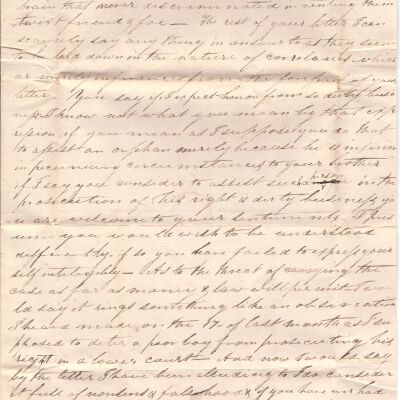 brain that never discriminated in venting them
twixt friend & foe — The rest of your letter I can
scarcely say any thing in answer to as they seem
to be laid down in the nature of corolaries which
are merely inferences from the of your
letter — You say if I expect honor from so dirty busi
ness I know not what you mean by that exp
ression if you mean as I suppose you do that
to assist an orphan merely because he is inferior
in pecuniary circumstances to your brother
if I say you consider to assist such a person in the
prosecution of his right is dirty business yo
u are welcome to your sentiments. I pres
ume you would wish to be understood
differently, if so you have failed to express your
self intelligibly — As to the threat of carrying the
case as far as money & law will permit I wo
uld say it rings something like an observation
I heard made on the 17 of last month as I su
pposed to deter a poor boy from prosecuting his
right in a lower court — And now I would say
by the letter I have been alluding to I do consider
it full of nonsense & falsehood & if you have